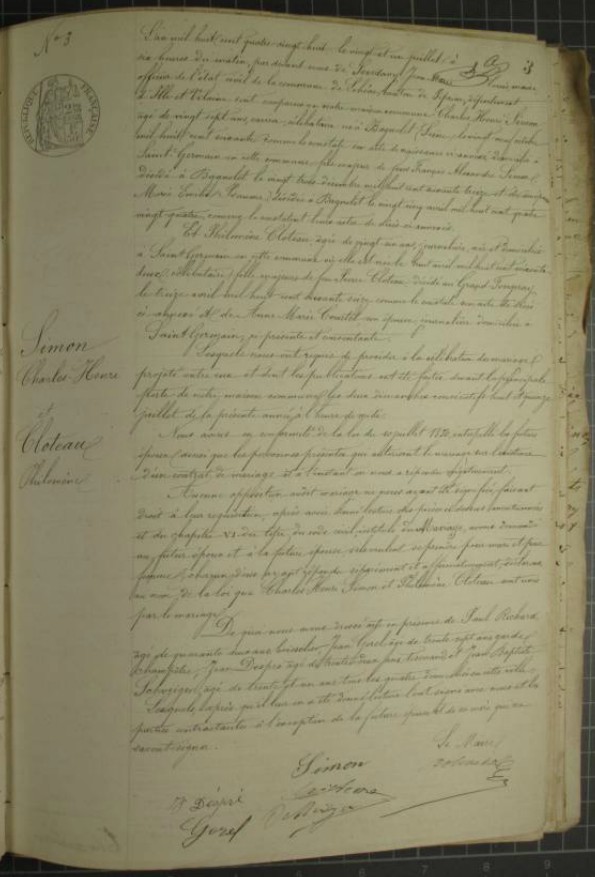 No 3
3
L'an mil huit cent quatre-vingt huit le vingt et un juillet à
heures du matin, par devant nous de maire
officier de l'état civil de la commune de canton de département
d'Ille et Vilaine, sont comparus en notre maison commune Charles Henri Simon
âgé de vingt sept ans, célibataire né à Bagnolet Seine le vingt neuf octobre
mil huit cent soixante comme le constate son acte de naissance ci annexé domicilié à
Saint Germain en cette commune, fils majeur de feu François Alexandre Simon
décédé à Bagnolet le vingt trois décembre mil huit cent soixante treize et de
Marie décédée à Bagnolet le vingt cinq avril mil huit cent quatre
vingt quatre, comme le constatent leurs actes de décès ci annexés.
Et Philomène Cloteau, âgée de vingt six ans, journalière, née et domiciliée
à Saint Germain en cette commune où elle est née le huit avril mil huit cent soixante
deux, célibataire, fille majeure de feu Pierre Cloteau décédé au Grand
le treize avril mil huit cent soixante onze comme le constate son acte de décès
ci annexé et de Anne Marie son épouse, journalière domiciliée à
Saint Germain, ci présente et consentante.
Lesquels nous ont requis de procéder à la célébration du mariage
projeté entre eux et dont les publications ont été faites devant la principale
porte de notre maison commune, les deux dimanches consécutifs huit et quinze
juillet de la présente année à l'heure de midi.
Nous avons en conformité de la loi du 10 juillet 1850, interpellé les futurs
époux ainsi que les personnes présentes qui autorisent le mariage sur l'existence
d'un contrat de mariage et à l'instant on nous a répondu négativement.
Aucune opposition audit mariage ne nous ayant été signifiée, faisant
droit à leur réquisition, après avoir donné lecture des pièces ci dessus mentionnées
et du chapitre VI du titre du code civil intitulé du Mariage, avons demandé
au futur époux et à la future épouse s'ils veulent se prendre pour mari et pour
femme, chacun d'eux ayant répondu séparément et affirmativement, déclarons
au nom de la loi que Charles Henri Simon et Philomène Cloteau sont unis
par le mariage.
De quoi nous avons dressé acte en présence de Paul Richard
âgé de quarante ans, Jean Gorel âgé de trente sept ans garde
champêtre, Jean Despré âgé de trente deux ans et Jean Baptiste
âgé de trente et un ans tous les quatre domiciliés en cette ville
Lesquels, après qu'il leur en a été donné lecture l'ont signé avec nous et les
parties contractantes à l'exception de la future épouse et de sa mère qui ne
savent signer.
Simon
Charles-Henri
et
Cloteau
Philomène
RÉPUBLIQUE FRANÇAISE
Le Maire
Simon
Despré
Gorel